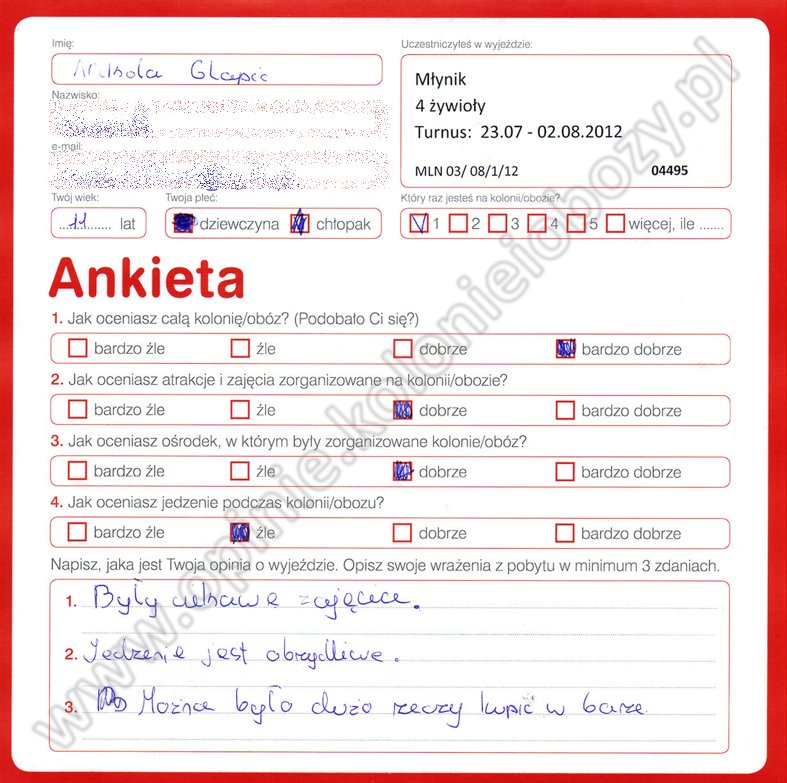 Imię:
Uczestniczyłeś w wyjeździe:
Nikola Glapic
Młynik
4 żywioły
Turnus: 23.07 - 02.08.2012
MLN 03/ 08/1/12 04495
Nazwisko:
e-mail:
Twój wiek: Twoja płeć: Który raz jesteś na kolonii/obozie?
...11....... lat dziewczyna chłopak 1 2 3 4 5 więcej, ile .......
Ankieta
1. Jak oceniasz całą kolonię/obóz? (Podobało Ci się?)
bardzo źle źle dobrze bardzo dobrze
2. Jak oceniasz atrakcje i zajęcia zorganizowane na kolonii/obozie?
bardzo źle źle dobrze bardzo dobrze
3. Jak oceniasz ośrodek, w którym były zorganizowane kolonie/obóz?
bardzo źle źle dobrze bardzo dobrze
4. Jak oceniasz jedzenie podczas kolonii/obozu?
bardzo źle źle dobrze bardzo dobrze
Napisz, jaka jest Twoja opinia o wyjeździe. Opisz swoje wrażenia z pobytu w minimum 3 zdaniach.
1. Były ciekawe zajęcia.
2. Jedzenie jest obrzydliwe.
3. Można było dużo rzeczy kupić w barze
www.opinie.kolonieiobozy.pl